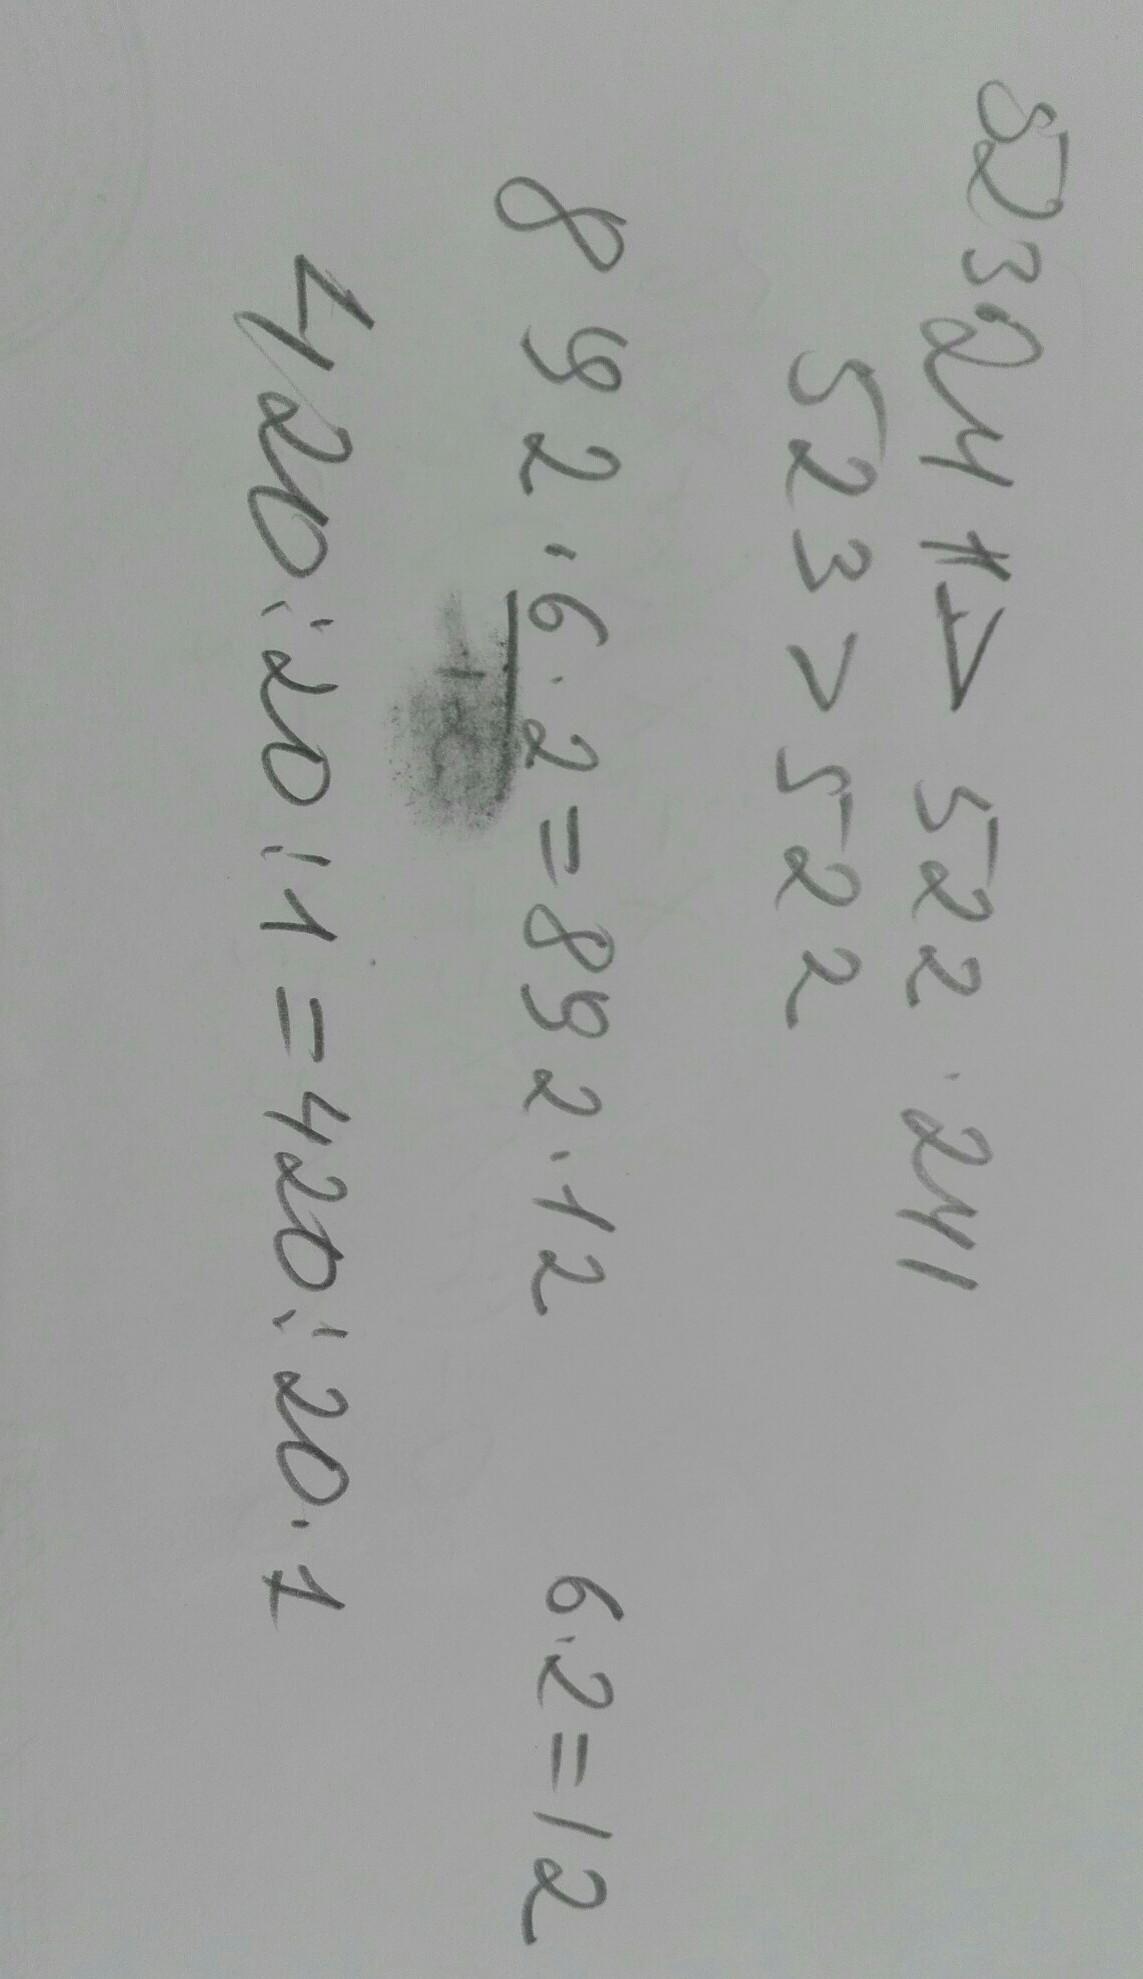 523·241 > 522·241
523 > 522
892·6·2=892·12 6·2=12
420:20:1=420:20·1